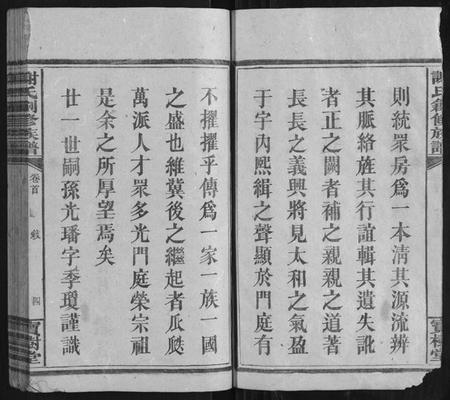 謝氏創修族譜
則統眾房為一本清其源流辨
其脈絡旌其行誼輯其遺失訛
者正之闕者補之親親之道著
長長之義興將見太和之氣盈
于宇內熙緝之聲顯於門庭有
寶樹堂
不擢擢乎傳為一家一族一國
之盛也維冀後之繼起者瓜瓞
萬派人才眾多光門庭榮宗祖
是余之所厚望焉矣
廿一世嗣孫光璠字季瓊謹識
謝氏創修族譜
卷首
四
寶樹堂